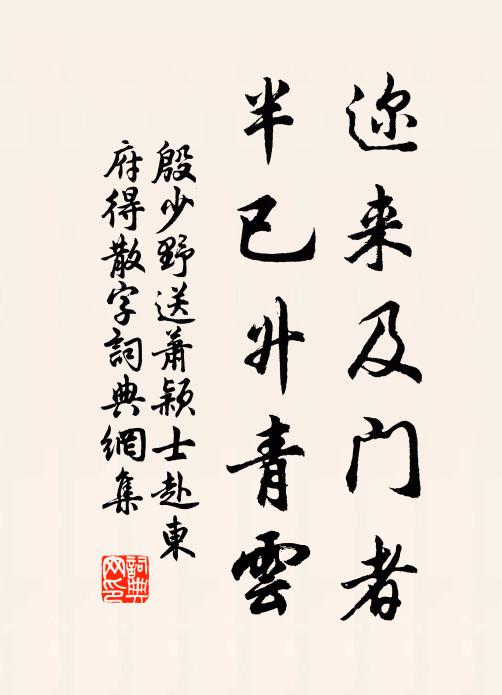 迩来及门者
半已升青雲
殷少野送蕭颖士赴東
府得散字詞典網集
詞典
网印